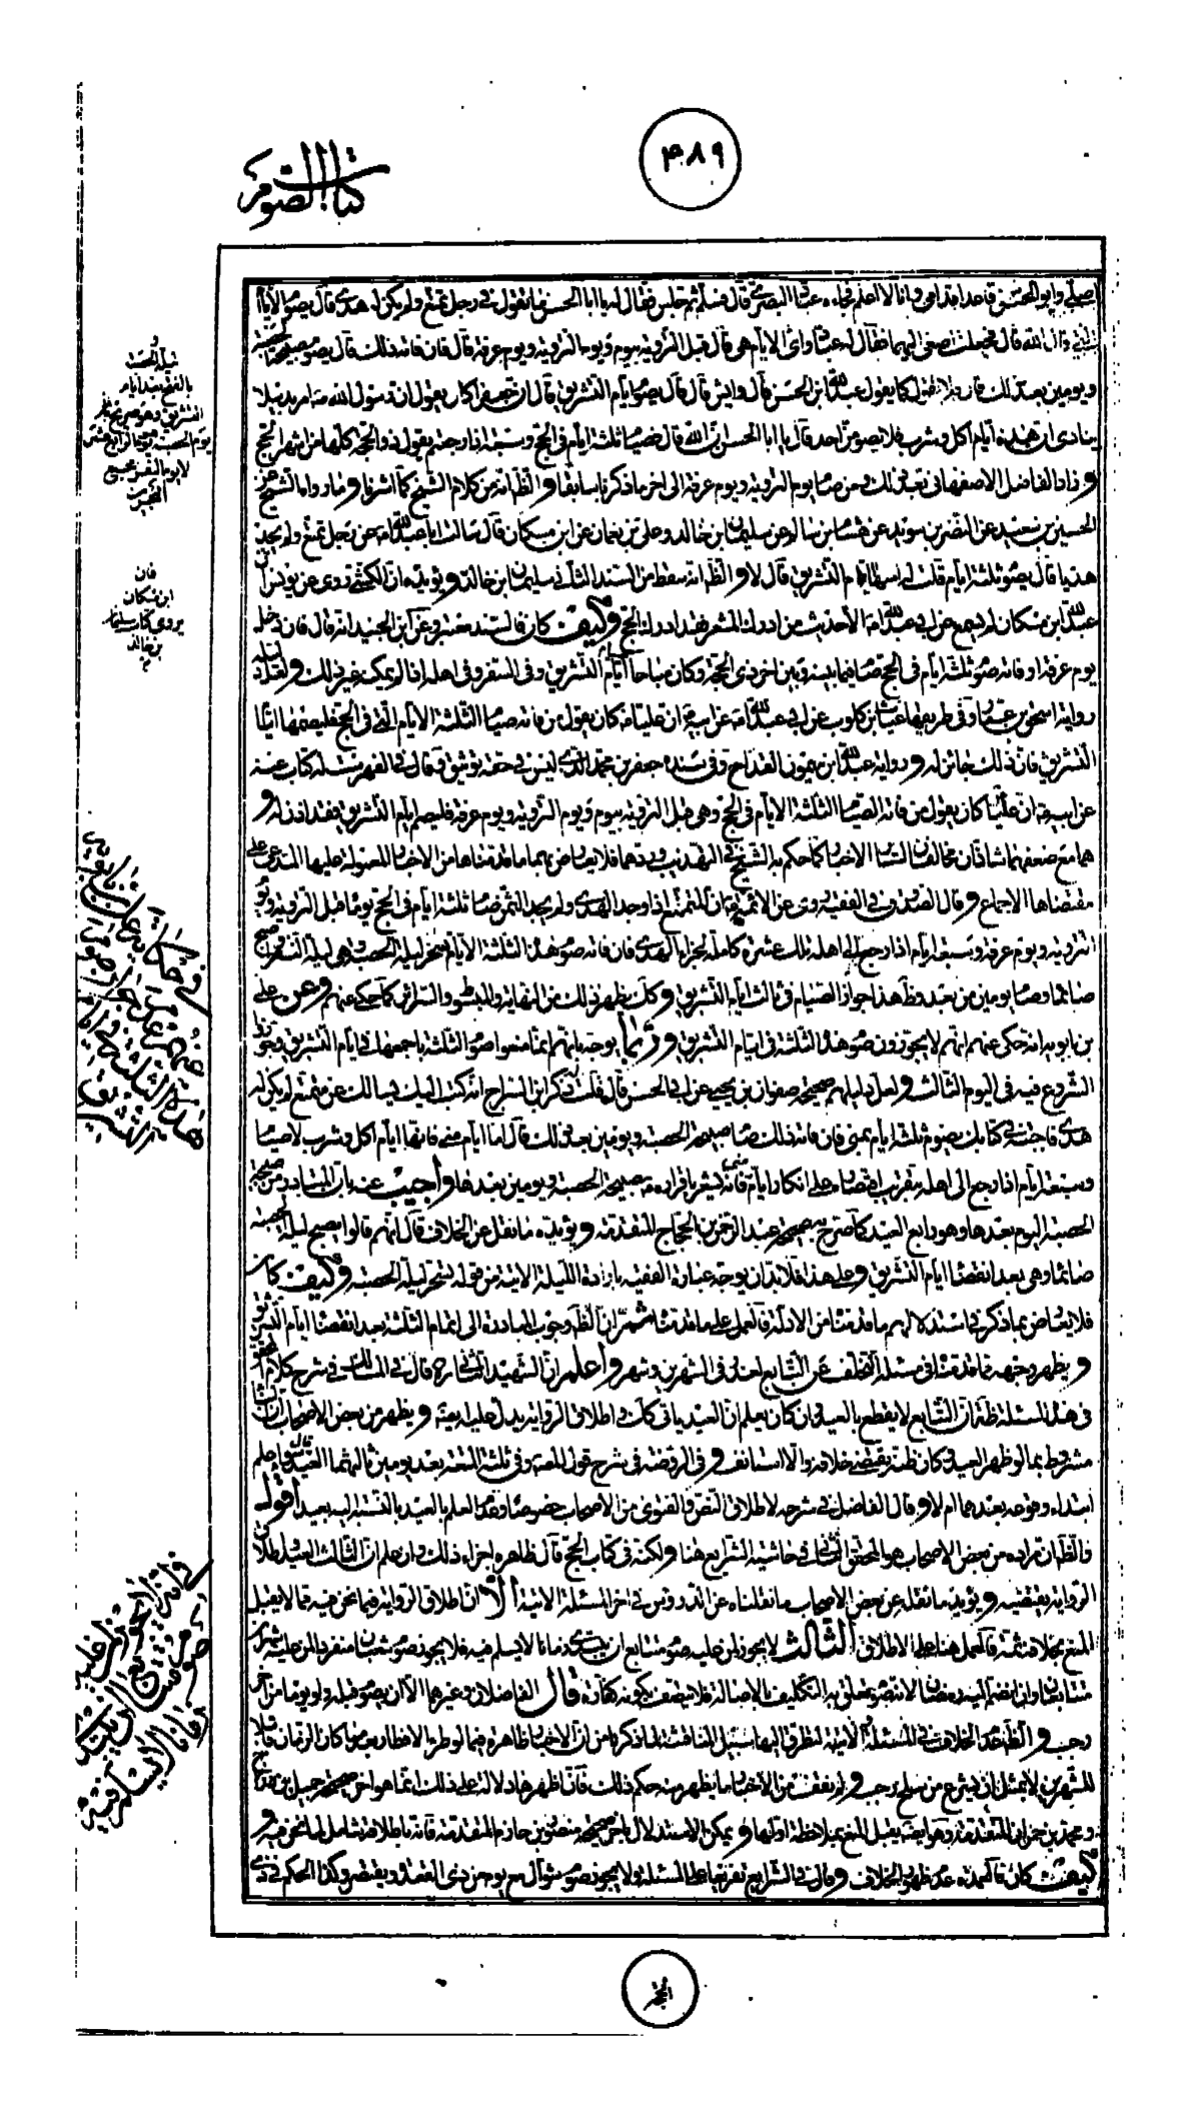 ٣٨٩
كتاب الصوم
يصلي وابو الحسن قاعدا قدامي وانا لا اعلم فجاءه عباد البصري قال فسلم ثم جلس فقال له يا ابا الحسن ما تقول في رجل تمتع ولم يكن له هدى قال يصوم الايام
التي قال الله قال فجعلت اصغى اليهما فقال له عباد واى الايام هى قال قبل التروية بيوم ويوم التروية ويوم عرفة قال فان فاته ذلك قال يصوم صبيحة الحصبة
ويومين بعد ذلك قال فلا تقول كما يقول عبد الله ابن الحسن قال وايش قال قال يصوم ايام التشريق قال ان جعفرا كان يقول ان رسول الله ص امر بديلا
ينادى ان هذه ايام اكل وشرب فلا يصومن احد قال يا ابا الحسن ان الله قال فصيام ثلثة ايام في الحج وسبعة اذا رجعتم قال كان جعفر يقول ذو الحجة كلها من اشهر الحج
وزاد الفاضل الاصفهاني بعد ذلك ومن صام يوم التروية ويوم عرفة الى اخر ما ذكرنا سابقا والظ انه من كلام الشيخ كما اشرنا وما رواه الشيخ عن
الحسين بن سعيد عن النضر بن سويد عن هشام بن سالم عن سليمان بن خالد وعلي بن نعمان عن ابن مسكان قال سالت ابا عبد الله ع عن رجل تمتع ولم يجد
هديا قال يصوم ثلثة ايام قلت له امنها ايام التشريق قال لا والظ انه سقط من السند الثاني سليمان بن خالد ويؤيده ان الكشي روى عن يونس ان
عبد الله ابن مسكان لم يسمع عن ابي عبد الله ع الا حديث من ادرك المشعر فقد ادرك الحج وكيف كان فالسند معتبر وعن ابن الجنيد انه قال فان دخل
يوم عرفة او فاته صوم ثلثة ايام في الحج صام فيما بينه وبين اخر ذي الحجة وكان مباحا ايام التشريق وفي السفر وفي اهله اذا لم يمكنه غير ذلك ولعله استند
رواية اسحق بن عمار وفي طريقها غياث بن كلوب عن ابي عبد الله ع عن ابيه ان عليا ع كان يقول من فاته صيام الثلثة الايام التي في الحج فليصمها ايام
التشريق فان ذلك جائز له ورواية عبد الله ابن ميمون القداح وفي سنده جعفر بن محمد الذي ليس في حقه توثيق وقال في الفهرست له كتاب عنه
عن ابيه ان عليا كان يقول من فاته الصيام الثلثة الايام في الحج وهى قبل التروية بيوم ويوم التروية ويوم عرفة فليصم ايام التشريق فقد اذن له و
هما مع ضعفهما شاذان مخالفان لسائر الاخبار كما حكم به الشيخ في التهذيب وردهما فلا يعارض بهما ما قدمناها من الاخبار المعمولة عليها المدعى على
مقتضاها الاجماع وقال الصدوق في الفقيه روى عن الائمة ع ان المتمتع اذا وجد الهدى ولم يجد الثمن صام ثلثة ايام في الحج يوما قبل التروية ويوم
التروية ويوم عرفة وسبعة ايام اذا رجع الى اهله تلك عشرة كاملة لجزاء الهدى فان فاته صوم هذه الثلثة الايام تسحر ليلة الحصبة وهى ليلة النفر واصبح
صائما وصام يومين من بعد وظ هذا جواز الصيام في ثالث ايام التشريق وكك يظهر ذلك من النهاية والمبسوط والسرائر كما حكى عنهم وعن علي
بن بابويه انه حكى عنهم انهم لا يجوزون صوم هذه الثلثة في ايام التشريق وربما يوجه بانهم انما منعوا صوم الثلثة باجمعها في ايام التشريق وجوزوا
الشروع فيه في اليوم الثالث ولعل دليلهم صحيحة صفوان بن يحيى عن ابي الحسن قال قلت له ذكر ابن السراج انه كتب اليك يسالك عن متمتع لم يكن له
هدى فاجبته في كتابك يصوم ثلثة ايام بمنى فان فاته ذلك صام صبيحة الحصبة ويومين بعد ذلك قال اما ايام منى فانها ايام اكل وشرب لا صيام
وسبعة ايام اذا رجع الى اهله بتقريب اقتصاره على انكار ايام منى فانه يشعر باقراره ع صبيحة الحصبة ويومين بعدها واجيب عنه بان المتبادر من صبيحة
الحصبة اليوم بعدها وهو رابع العيد كما صرح به صحيحة عبد الرحمن بن الحجاج المتقدمة ويؤيده ما نقل عن الخلاف قال انهم قالوا يصبح ليلة الحصبة
صائما وهى بعد انقضاء ايام التشريق وعلى هذا فلا بد ان يوجه عبارة الفقيه بارادة الليلة الاتية من قوله تسحر ليلة الحصبة وكيف كان
فلا يعارض بما ذكر في مستند لهم ما قدمنا من الادلة فالعمل على ما قدمنا ثم ان الظ وجوب المبادرة الى اتمام الثلثة بعد انقضاء ايام التشريق
ويظهر وجهه مما قدمنا في مسئلة التخلف عن التتابع لعذر في الشهرين وشهر واعلم ان الشهيد الثاني ره قال في المسالك في شرح كلام المحقق
في هذه المسئلة ظ ان التتابع لا يقطع بالعيد وان كان يعلم ان العيد ياتي كك واطلاق الرواية يدل عليه ايضا ويظهر من بعض الاصحاب ان البناء
مشروط بما لو ظهر العيد وكان ظنه يقتضى خلافه والا استانف وفي الروضة في شرح قول اللمعة وفي ثلثة المتعة بعد يومين ثالثهما العيد قال سواء علم
ابتداء وقوعه بعدهما ام لا وقال الفاضل في شرحه لاطلاق النص والفتوى من الاصحاب خصوصا وعدم العلم بالعيد بالنسبة اليه بعيد اقول
والظ ان مراده من بعض الاصحاب هو المحقق الثاني في حاشية الشرايع هنا ولكنه في كتاب الحج قال ظاهره اجزاء ذلك وان علم ان الثالث العيد واطلاق
الرواية يقتضيه ويؤيد ما نقله عن بعض الاصحاب ما نقلناه عن الدروس في اخر المسئلة الاتية الا ان اطلاق الرواية فيما نحن فيه مما لا يقبل
المنع بخلافه ثمة فالعمل هنا على الاطلاق الثالث لا يجوز لمن عليه صوم متتابع ان يبتدى زمانا لا يسلم فيه فلا يجوز صوم شعبان منفردا لمن عليه شهران
متتابعان وان انضم اليه رمضان لانه صوم متعلق به التكليف بالاصالة فلا يتصف بكونه كفارة وقال الفاضلان وغيرهما الا ان يصوم قبله ولو يوما من اخر
رجب والظ عدم الخلاف في المسئلة
للشهرين لا يمثل ان يشرع من سلخ رجب ولم نقف من الاخبار ما يظهر منه حكم ذلك فان اظهرها دلالة على ذلك انما هو اخر صحيحة جميل بن دراج
ومحمد بن حمران المتقدمة وهو ايضا يقبل المنع بملاحظة اولها ويمكن الاستدلال باخر صحيحة منصور بن حازم المتقدمة فانه باطلاقه شامل لما نحن فيه و
كيف كان فالعمدة عدم ظهور الخلاف وقال في الشرايع تفريعا على المسئلة ولا يجوز صوم شوال مع يوم من ذي القعدة ويقتصر وكذا الحكم في ذي
الحجة
ليلة الحصبة
بالفتح بعد ايام
التشريق وهو صريح بان
يوم الحصبة يوم الرابع عشر
لا يوم النفر مجمع
البحرين
فان
ابن مسكان
يروى كتاب سليمان
بن خالد
في حكاية علي بن بابويه
عنهم عدم جواز صوم
هذه الثلثة في ايام
التشريق
في انه لا يجوز لمن عليه
صوم متتابع ان يبتدى
زمانا لا يسلم فيه